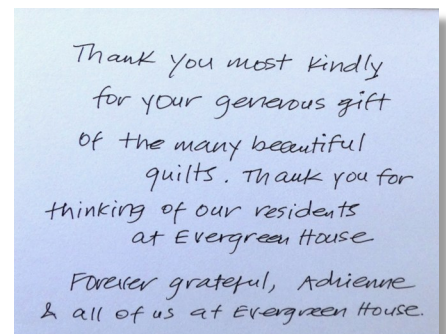 Thank you most kindly
for your generous gift
of the many beautiful
quilts. Thank you for
thinking of our residents
at Evergreen House
Forever grateful, Adrienne
& all of us at Evergreen House.